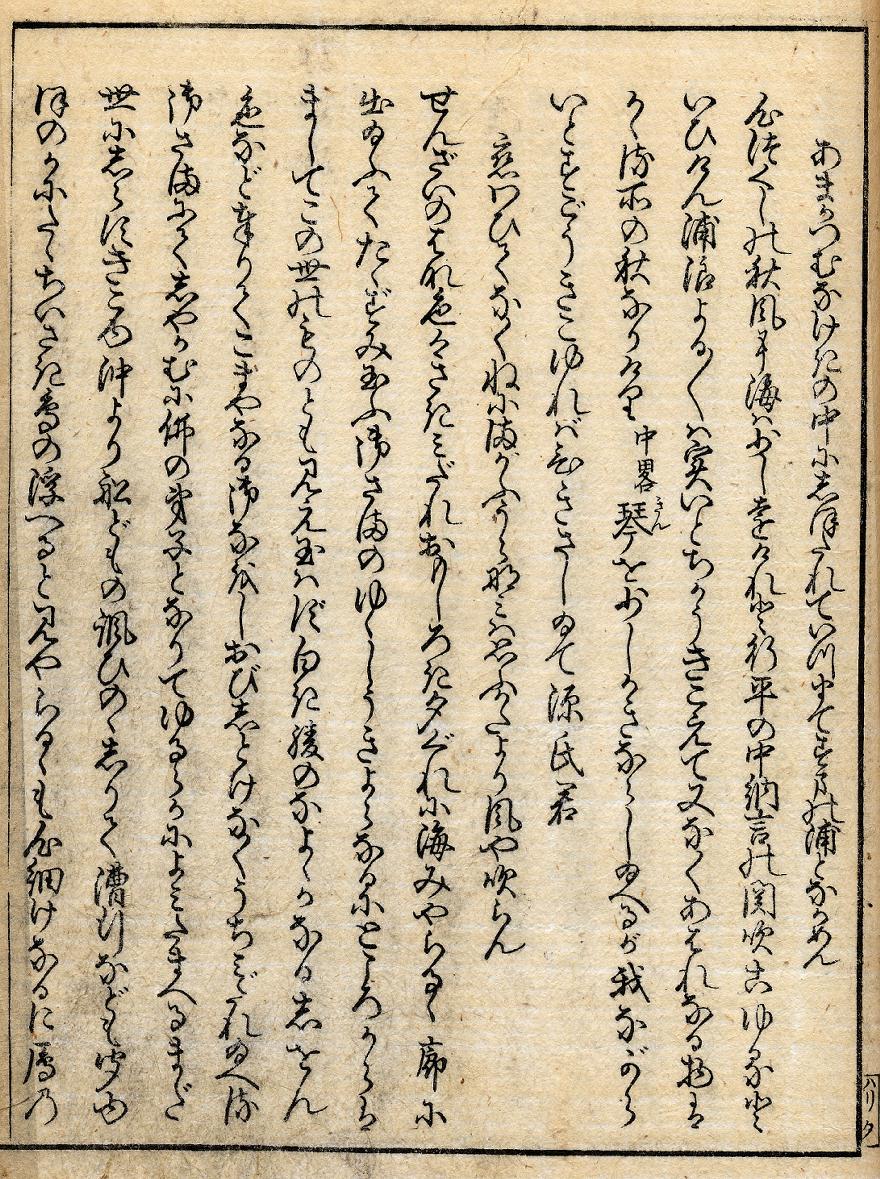 あまがつむなげきの中にしほたれていつまてすまの浦とながめん
心づくしの秋風に海はすこし遠けれど行平の中納言の関吹こゆるといひけん浦浪よる〱は実いとちかうきこえて又なくあはれなる物は
かゝる所の秋なりけり 中畧 琴きんを少しかきならし給へるが我ながら
いとすごうきこゆればひきさし給て 源氏君
恋わひてなくねにまがふうら浪は思ふかたより風や吹らん
せんざいのはな色々さきみだれおもしろき夕ぐれに海みやらるゝ廊に
出給ふてたゝずみ玉ふ御さまのゆゝしうきよらなるにところからは
ましてこの世のものとも見え玉はず白き綾のなよゝかなるしをん
色など奉りてこまやかなる御なほしおびしとけなくうちみだれ給へる
御さまにてしやかむに佛の弟子となのりてゆるゝかによみたまへるまだ
世にしらずきこゆ沖より舩どもの諷ひのゝしりて漕行なども聞ゆ
ほのかにたゝちいさき鳥の浮へると見やらるゝも心細けなるに鳫乃